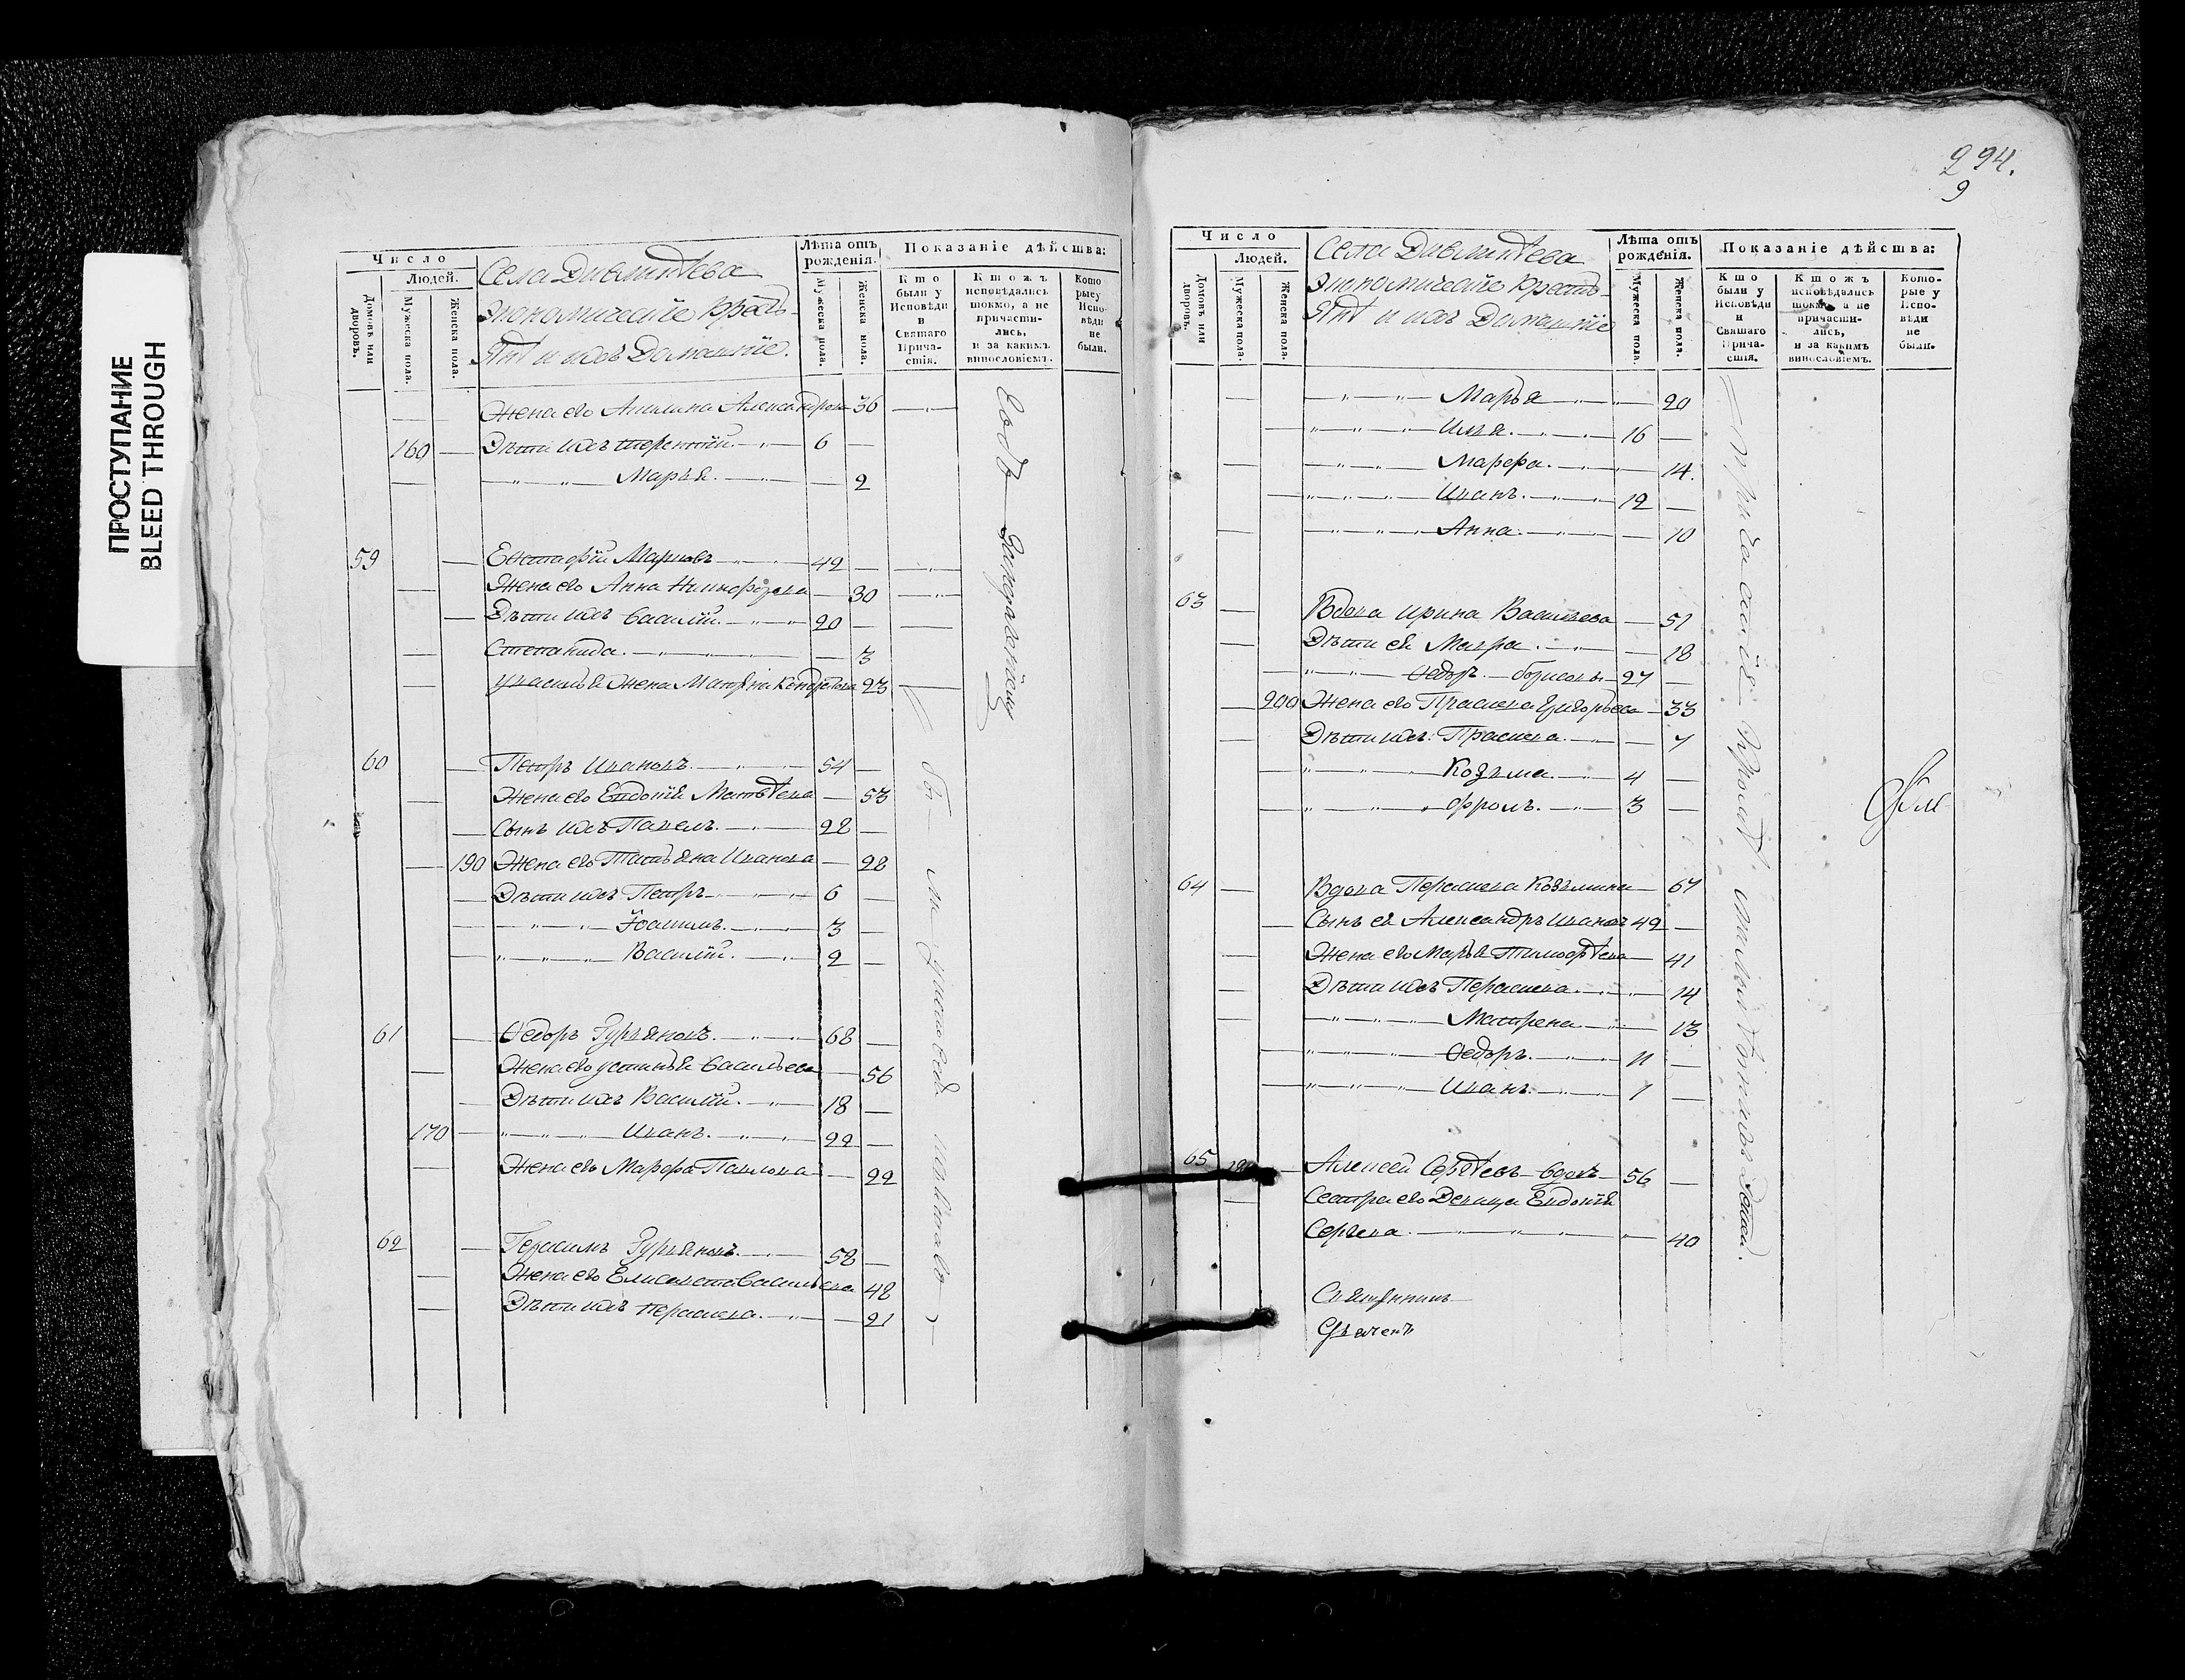 ПРОСТУПАНИЕ
BLEED THROUGH
Число
Людей.
Домовъ или дворовъ.
Мужеска пола.
Женска пола.
Села
Экономическïе крѣсть-
Янѣ и ихъ Домашнïе.
Лѣта отъ рожденïя.
Мужеска пола.
Женска пола.
Показанïе дѣйства:
Кто были у Исповѣди и Святаго Прича-стïя.
Ктожъ исповѣдались токмо, а не причасти-лись, и за какимъ винословïемъ.
Кото рыеу Испо вѣди не были.
Жена его Акилина Александрова 36
160 Дѣти ихъ терентïй 6
Марья 2
59 Евстафïй Марковъ 42
Жена его Анна Никифорова 30
Дѣти ихъ василïй 20
Степанида 3
Увасилья Жена Матрiна Кондратева 23
60 Петръ Ивановъ 54
Жена его Евдотïя Матвѣева 53
Сынъ ихъ Павелъ 28
190 Жена его Татьяна Иванова 28
Дѣти ихъ Петръ 6
Iоакимъ 3
Василïй 2
61 Ѳедоръ Гурьяновъ 68
Жена его устинья васильева 56
Дѣти ихъ Василïй 18
170 Иванъ 22
Жена его Марфа Павлова 22
62 Герасимъ Гурьяновъ 58
Жена его Елисавета васильева 48
Дѣти ихъ перасковa 21
у исповеди
294.
9
Число
Людей.
Домовъ или дворовъ.
Мужеска пола.
Женска пола.
Села
Экономическïе крестьЯнѣ и ихъ Домашнïе
Лѣта отъ рожденïя.
Мужеска пола.
Женска пола.
Показанïе дѣйства:
Кто были у Исповѣди и Святаго Прича-стïя.
Ктожъ исповѣдались токмо, а не причасти-лись, и за какимъ винословïемъ.
Кото-рые у Испо-вѣди не были.
Марья 20
Илья 16
Марфа 14.
Иванъ 12
Анна 10
63 Вдова ирина Васильева 51
Дѣти ея Мавра 18
Ѳедоръ борисовъ 27
200 Жена его Прасковa Григорьева 33
Дѣти ихъ Прасковa 7
Козьма 4
Фролъ 3
64 Вдова Перасковa Козьмина 67
Сынъ ея Александръ Ивановъ 42
Жена его Марья Тимофѣева 41
Дѣти ихъ Перасковa 14
Матрена 13
Ѳедоръ 11
Иванъ 1
65 Алексей Сергѣевъ вдовъ 56
Сестра его Девица Евдотïя
Сергева 40
причастïя кромѣ